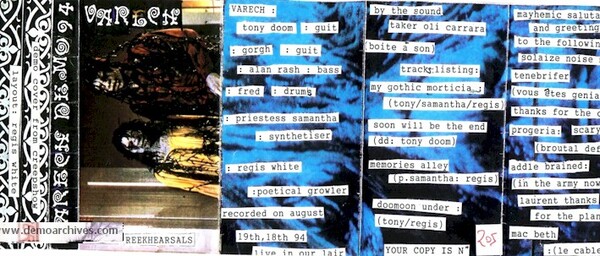 VARECH
VARECH DEMO 94
demo cover from creepshow
layout : regis white
www.demoarchives.com
REEKHEARSALS
VARECH :
tony doom : guit
: gorgh : guit
: alan rash : bass
: fred : drums
: priestess samantha
: synthetiser
: regis white
:poetical growler
recorded on august
19th,18th 94
live in our lair
by the sound
taker oli carrara
(boite a son)
tracks listing:
my gothic morticia :
(tony/samantha/regis)
soon will be the end
(dd: tony doom)
memories alley
(p.samantha: regis)
doomoon under :
(tony/regis)
YOUR COPY IS N°
205
mayhemic saluta
and greeting
to the followin
solaize noise :
tenebrifer
(vous êtes genia
thanks for the c
progeria: scary
(broutal def
addle brained:
(in the army now
laurent thanks
for the plan
mac beth
:(le cable